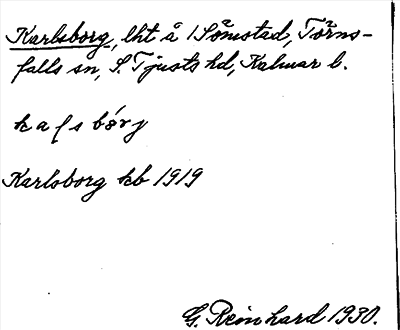 Karlsborg, lht å 1 Sömstad, Törns-
falls sn, S. Tjusts hd, Kalmar l.
Karlsborg kb 1919
G. Reinhard 1930.